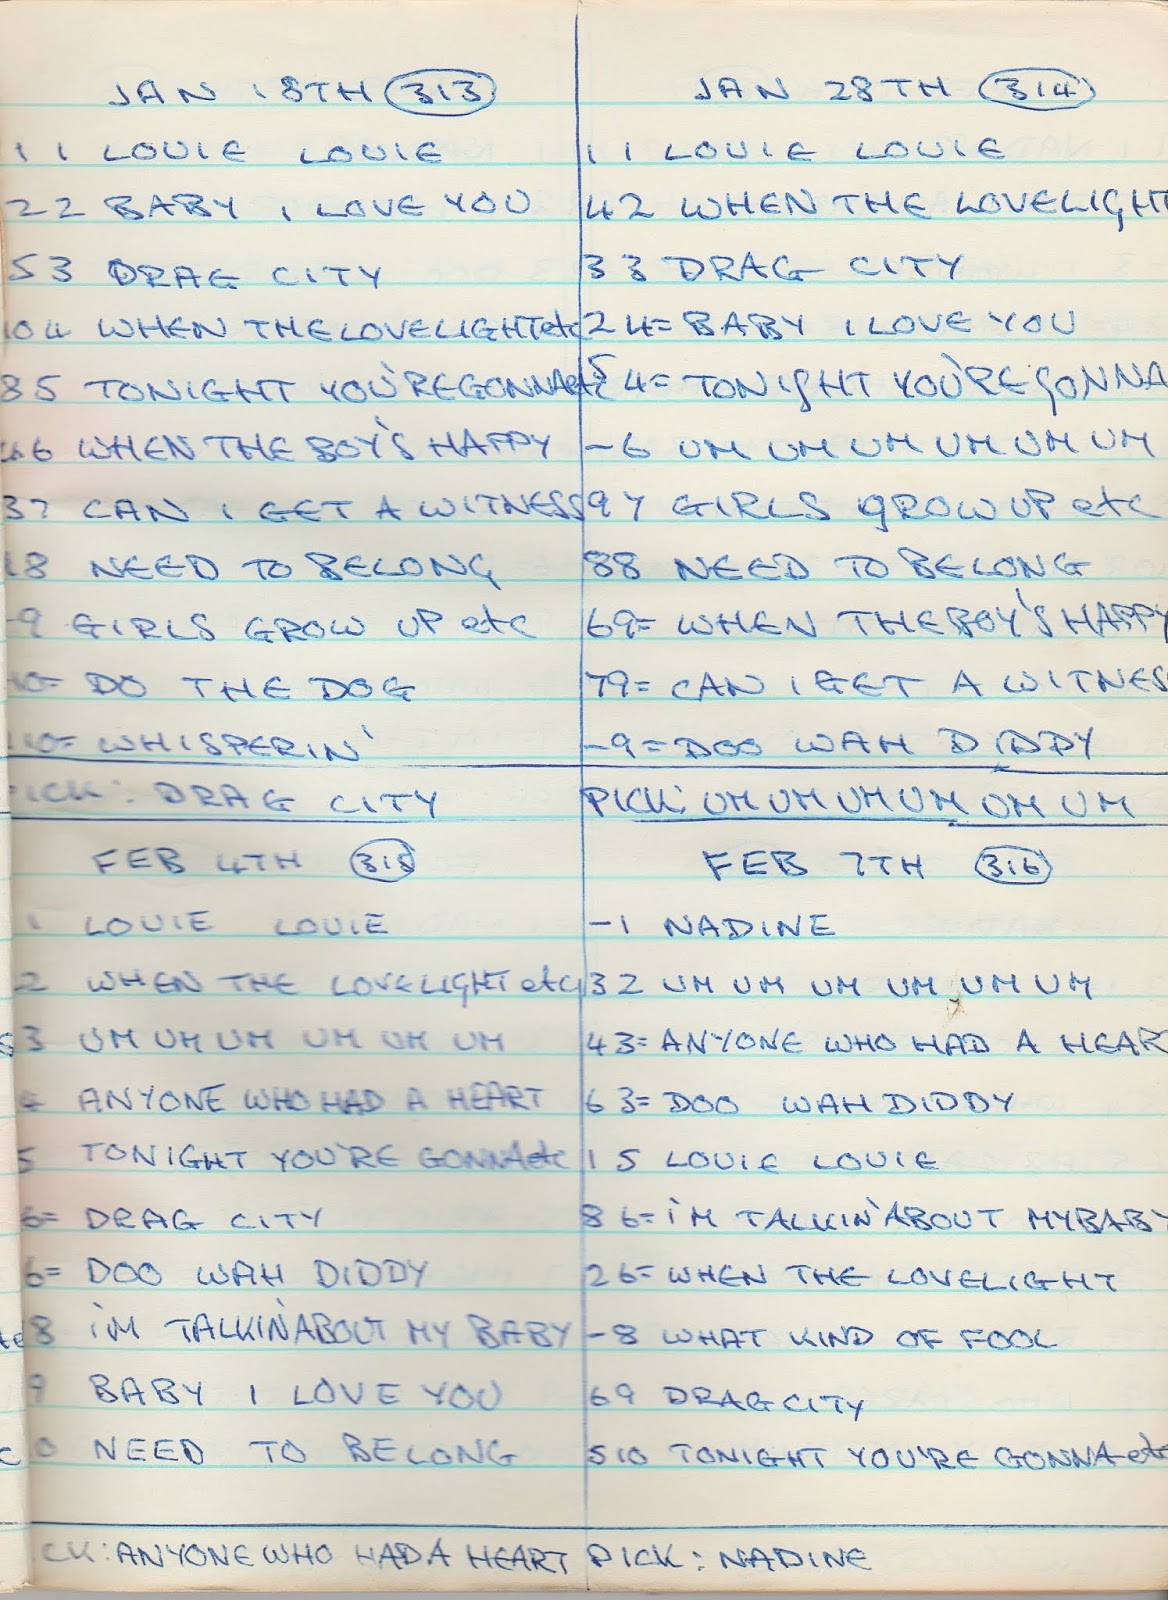 JAN 18TH 313
1 1 LOUIE LOUIE
2 2 BABY I LOVE YOU
5 3 DRAG CITY
10 4 WHEN THE LOVELIGHT etc
8 5 TONIGHT YOU'RE GONNA etc
6 WHEN THE BOY'S HAPPY
3 7 CAN I GET A WITNESS
8 NEED TO BELONG
-9 GIRLS GROW UP etc
10= DO THE DOG
10= WHISPERIN'
PICK: DRAG CITY
JAN 28TH 314
1 1 LOUIE LOUIE
4 2 WHEN THE LOVELIGHT
3 3 DRAG CITY
2 4= BABY I LOVE YOU
5 4= TONIGHT YOU'RE GONNA
-6 UM UM UM UM UM UM
9 7 GIRLS GROW UP etc
8 8 NEED TO BELONG
6 9= WHEN THE BOY'S HAPPY
7 9= CAN I GET A WITNESS
-9= DOO WAH DIDDY
PICK: UM UM UM UM UM UM
FEB 4TH 315
1 LOUIE LOUIE
2 WHEN THE LOVELIGHT etc
3 UM UM UM UM UM UM
4 ANYONE WHO HAD A HEART
5 TONIGHT YOU'RE GONNA etc
6= DRAG CITY
6= DOO WAH DIDDY
8 I'M TALKIN' ABOUT MY BABY
9 BABY I LOVE YOU
0 NEED TO BELONG
CK: ANYONE WHO HAD A HEART
FEB 7TH 316
-1 NADINE
3 2 UM UM UM UM UM UM
4 3= ANYONE WHO HAD A HEAR
6 3= DOO WAH DIDDY
1 5 LOUIE LOUIE
8 6= I'M TALKIN' ABOUT MY BABY
2 6= WHEN THE LOVELIGHT
-8 WHAT KIND OF FOOL
6 9 DRAG CITY
5 10 TONIGHT YOU'RE GONNA etc
PICK: NADINE